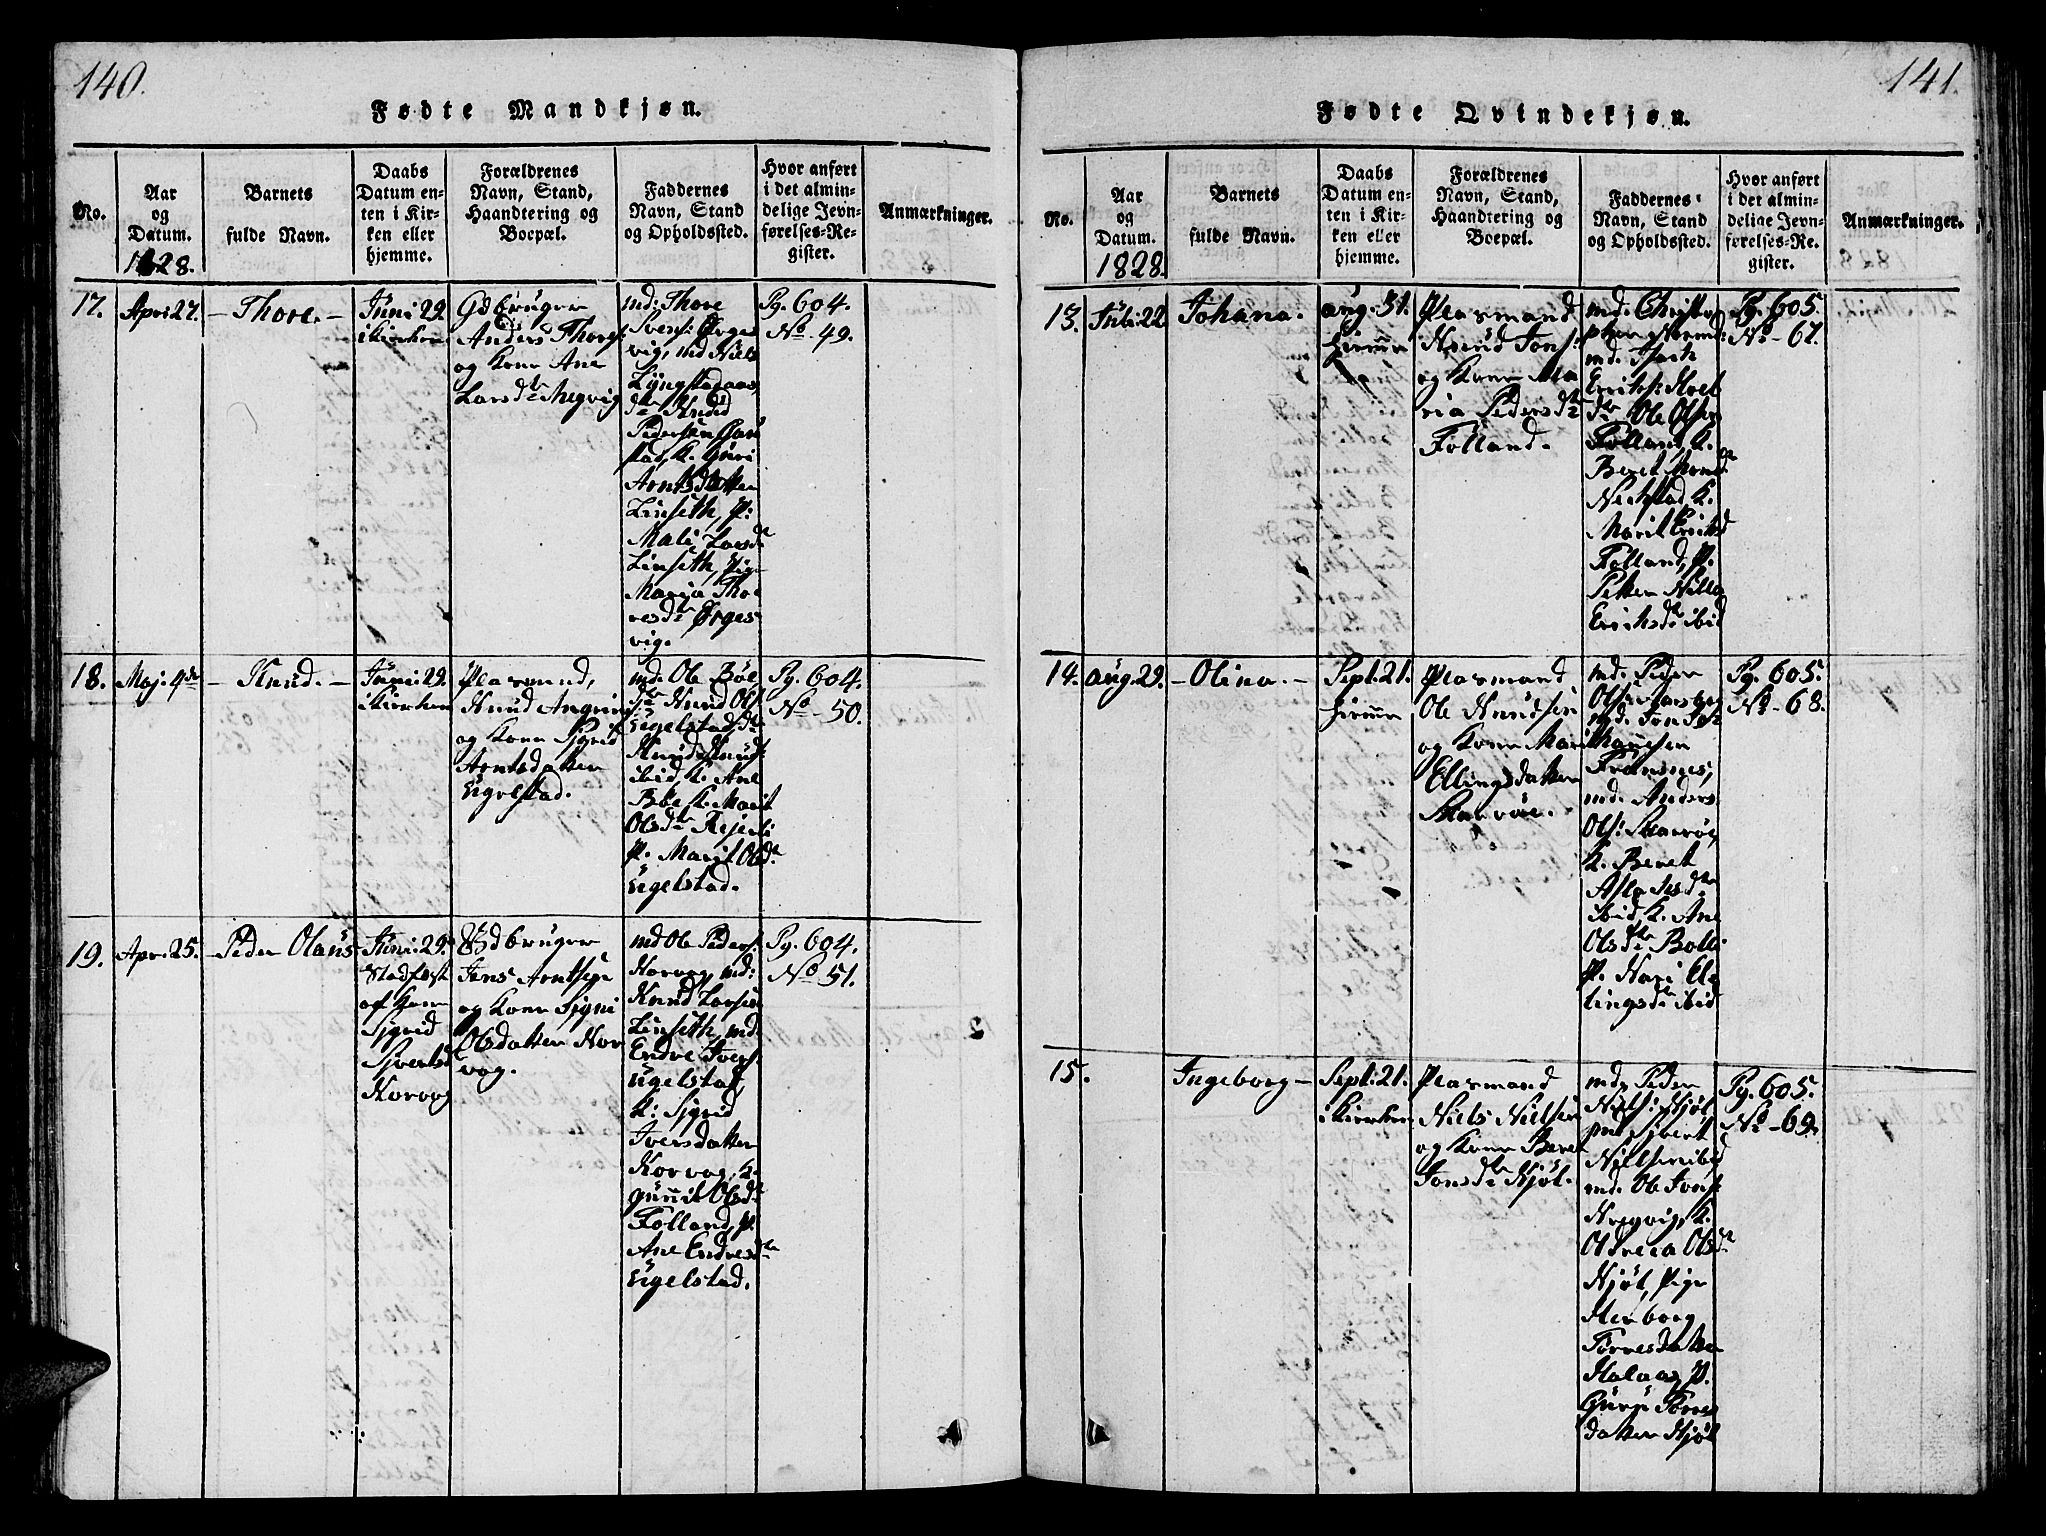 140.
Fødte Mandkjøn.
No.
Aar
og
Datum.
1828.
Barnets
fulde Navn.
Daabs
Datum en-
ten i Kir-
ken eller
hjemme.
Forældrenes
Navn, Stand,
Haandtering og
Boepæl.
Faddernes
Navn, Stand
og Opholdssted.
Hvor anført
i det almin-
delige Jevn-
førelses-Re-
gister.
Anmærkninger.
17.
Apr: 27.
- Thore. -
Juni 29
i kirken
Gdbruger
Anders Thores:
og Kone Ane
Larsdtr Megvig
md: Thore
Svens: Ørges
vig, md Niels
Lyngstadaas,
Knud
Pedersen
k. Guri
Arntsdatter
Linseth, P:
Mali Larsdtr
Linseth, Pige
Marija Tho
resdtr Ørges
vig.
Pg. 604.
No. 49.
18.
Maj. 4de
- Knud. -
Juni: 29.
i kirken
Plasmand,
Knud
og Kone Sjgrid
Arntsdatter
Ugelstad.
md. Ole Bøe
Knud Ols:
Ugelstad
Knud Knuds:
ibid, k. Ane
Bøe k. Marit
Olsdtr
P. Marit Olsdr
Ugelstad.
Pg. 604.
No - 50.
19.
Apr: 25.
- Peder Olaus
Juni: 29.
Stadfæst
af Kone
Sjgrid
Sjvertsd
Korvog
Gdbruger
Jens Arntsen
og Kone Sjgni
Olsdatter Kor
vog.
md Ole Peders:
Korvog, md:
Knud Larsen
Linseth, md.
Endre Ivers:
Ugelstad,
k: Sjgrid
Iversdatter
Korvog, k.
Gunnil Olsdr
Folland, P.
Ane Endresdtr
Ugelstad.
Pg. 604.
No 51.
141.
Fødte Qvindekjøn.
No.
Aar
og
Datum.
1828.
Barnets
fulde Navn.
Daabs
Datum en-
ten i Kir-
ken eller
hjemme.
Forældrenes
Navn, Stand,
Haandtering og
Boepæl.
Faddernes
Navn, Stand
og Opholdssted.
Hvor anført
i det almin-
delige Jevn-
førelses-Re-
gister.
Anmærkninger.
13.
Juli: 22
Johana.
aug. 31.
hjemme
Plasmand
Knud Jons:
og Kone Ma
ria Pedersdtr
Folland.
md. Christo
md. Isach
Eriks:
Ole Olsen
Folland, k.
Beret
k.
Marit Eriksd
Folland, P.
Petter Nille
Eriksdtr ibid
Pg. 605.
No - 67.
14.
aug. 29.
- Olina. -
Sept: 21.
hjemme
Plasmand
Ole Knudsen
og Kone Marit
Ellingsdatter
Skarvøe.
md. Peder
Olsen
md. Jon Jo
hannesen
Fransnes,
md. Anders
Ols: Skarvøe,
k. Beret
Aslaksdtr
ibid, k. Ane
Olsdtr Bolli
P. Kari El
lingsdtr ibid
Pg. 605.
No - 68.
15.
Ingeborg -
Sept: 21.
i kirken
Plasmand
Niels Nielsen
og Kone Beret
Jonsdtr Kjøl.
md. Peder
Niels: Kjøl
md, Sjvert
Nielsen ibid
md. Ole Jons:
Megvig, k.
Oldreia Olsdtr
Kjøl, Pige
Herborg
Torresdatter
Halaas, P.
Gurji Torres
datter Kjøl
Pg. 605.
No - 69.